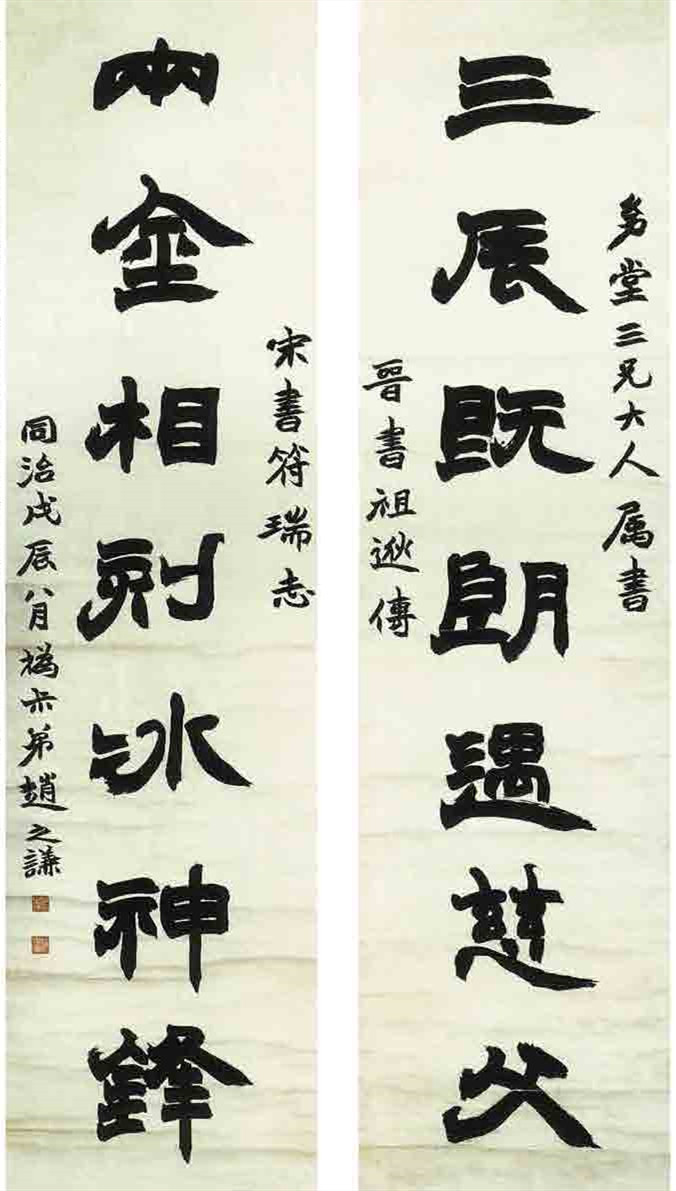 堂三兄大人属書
三辰既朗遇慈父
晉書祖逖傳
宋書符瑞志
兩金相刻冰神鋒
同治戊辰八月撝尗弟趙之謙